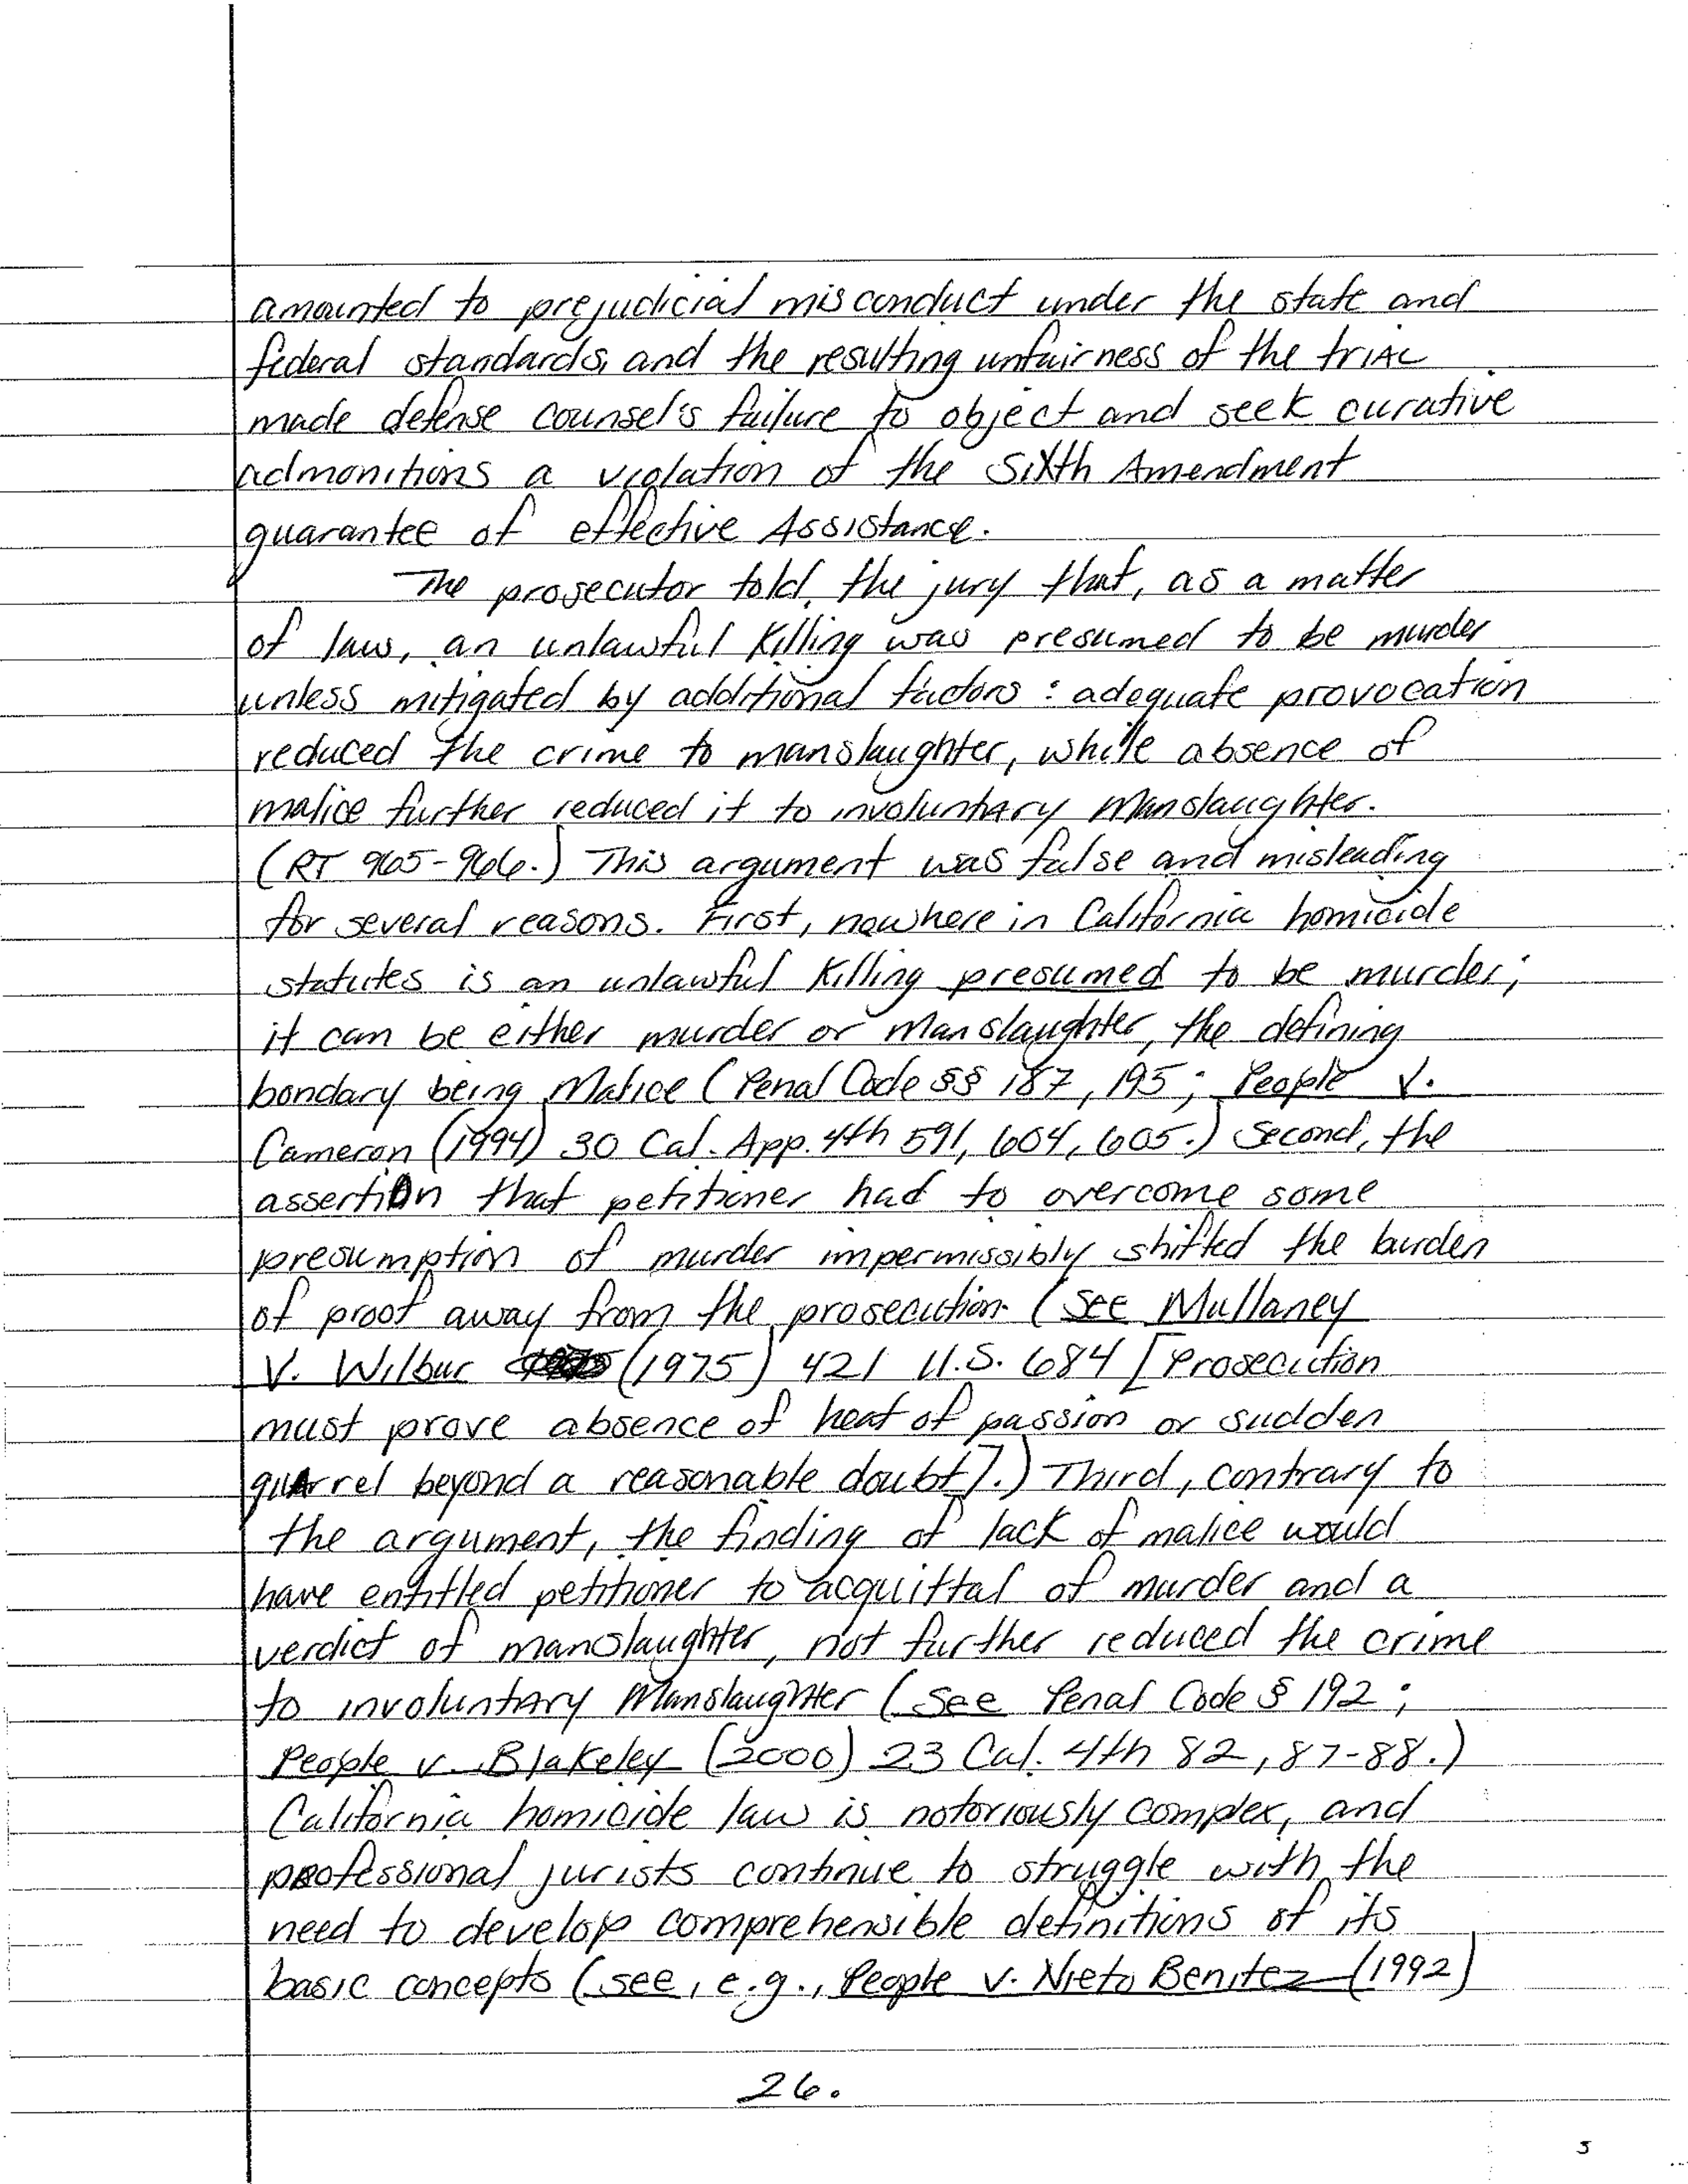 amounted to prejudicial misconduct under the state and
federal standards, and the resulting unfairness of the triAL
made defense counsel's failure to object and seek curative
admonitions a violation of the Sixth Amendment
guarantee of effective Assistance.
The prosecutor told the jury that, as a matter
of law, an unlawful killing was presumed to be murder
unless mitigated by additional factors: adequate provocation
reduced the crime to manslaughter, while absence of
malice further reduced it to involuntary manslaughter.
(RT 965-966.) This argument was false and misleading
for several reasons. First, nowhere in California homicide
statutes is an unlawful killing presumed to be murder;
it can be either murder or manslaughter, the defining
bondary being Malice (Penal Code §§ 187, 195; People v.
Cameron (1994) 30 Cal. App. 4th 591, 604, 605.) Second, the
assertion that petitioner had to overcome some
presumption of murder impermissibly shifted the burden
of proof away from the prosecution (see Mullaney
V. Wilbur (1975) 421 U.S. 684 [Prosecution
must prove absence of heat of passion or sudden
quarrel beyond a reasonable doubt].) Third, contrary to
the argument, the finding of lack of malice would
have entitled petitioner to acquittal of murder and a
verdict of manslaughter, not further reduced the crime
to involuntary Manslaughter (see Penal Code § 192;
People v. Blakeley (2000) 23 Cal. 4th 82, 87-88.)
California homicide law is notoriously complex, and
professional jurists continue to struggle with the
need to develop comprehensible definitions of its
basic concepts (see, e.g., People v. Nieto Benitez (1992)
26.
5